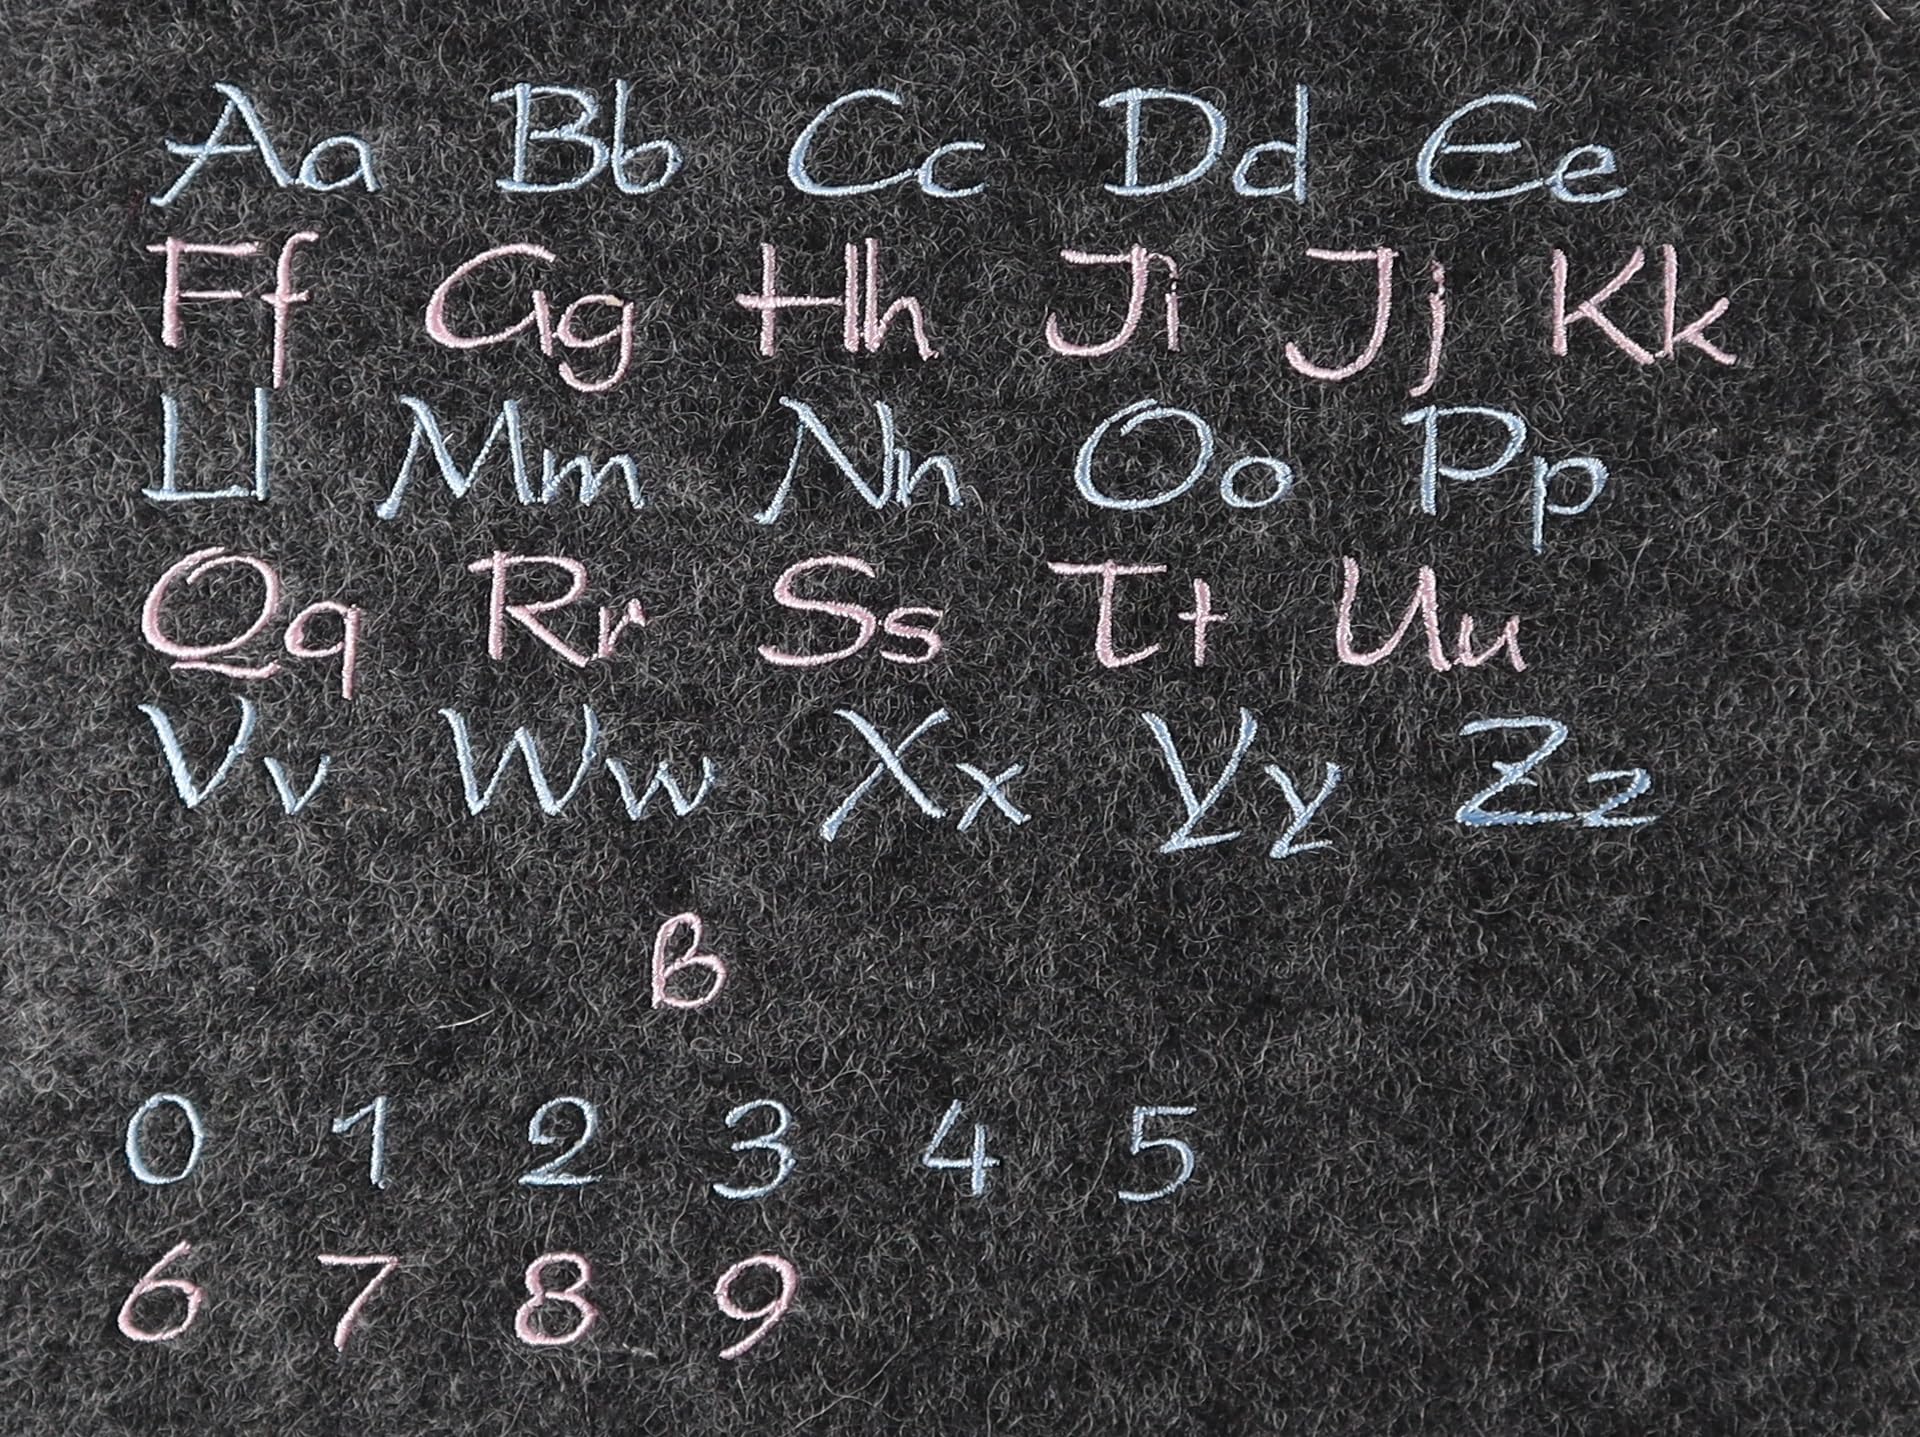 Aa Bb Cc Dd Ee
Ff Gg Hh Ii Jj Kk
Ll Mm Nn Oo Pp
Qq Rr Ss Tt Uu
Vv Ww Xx Yy Zz
ß
0 1 2 3 4 5
6 7 8 9